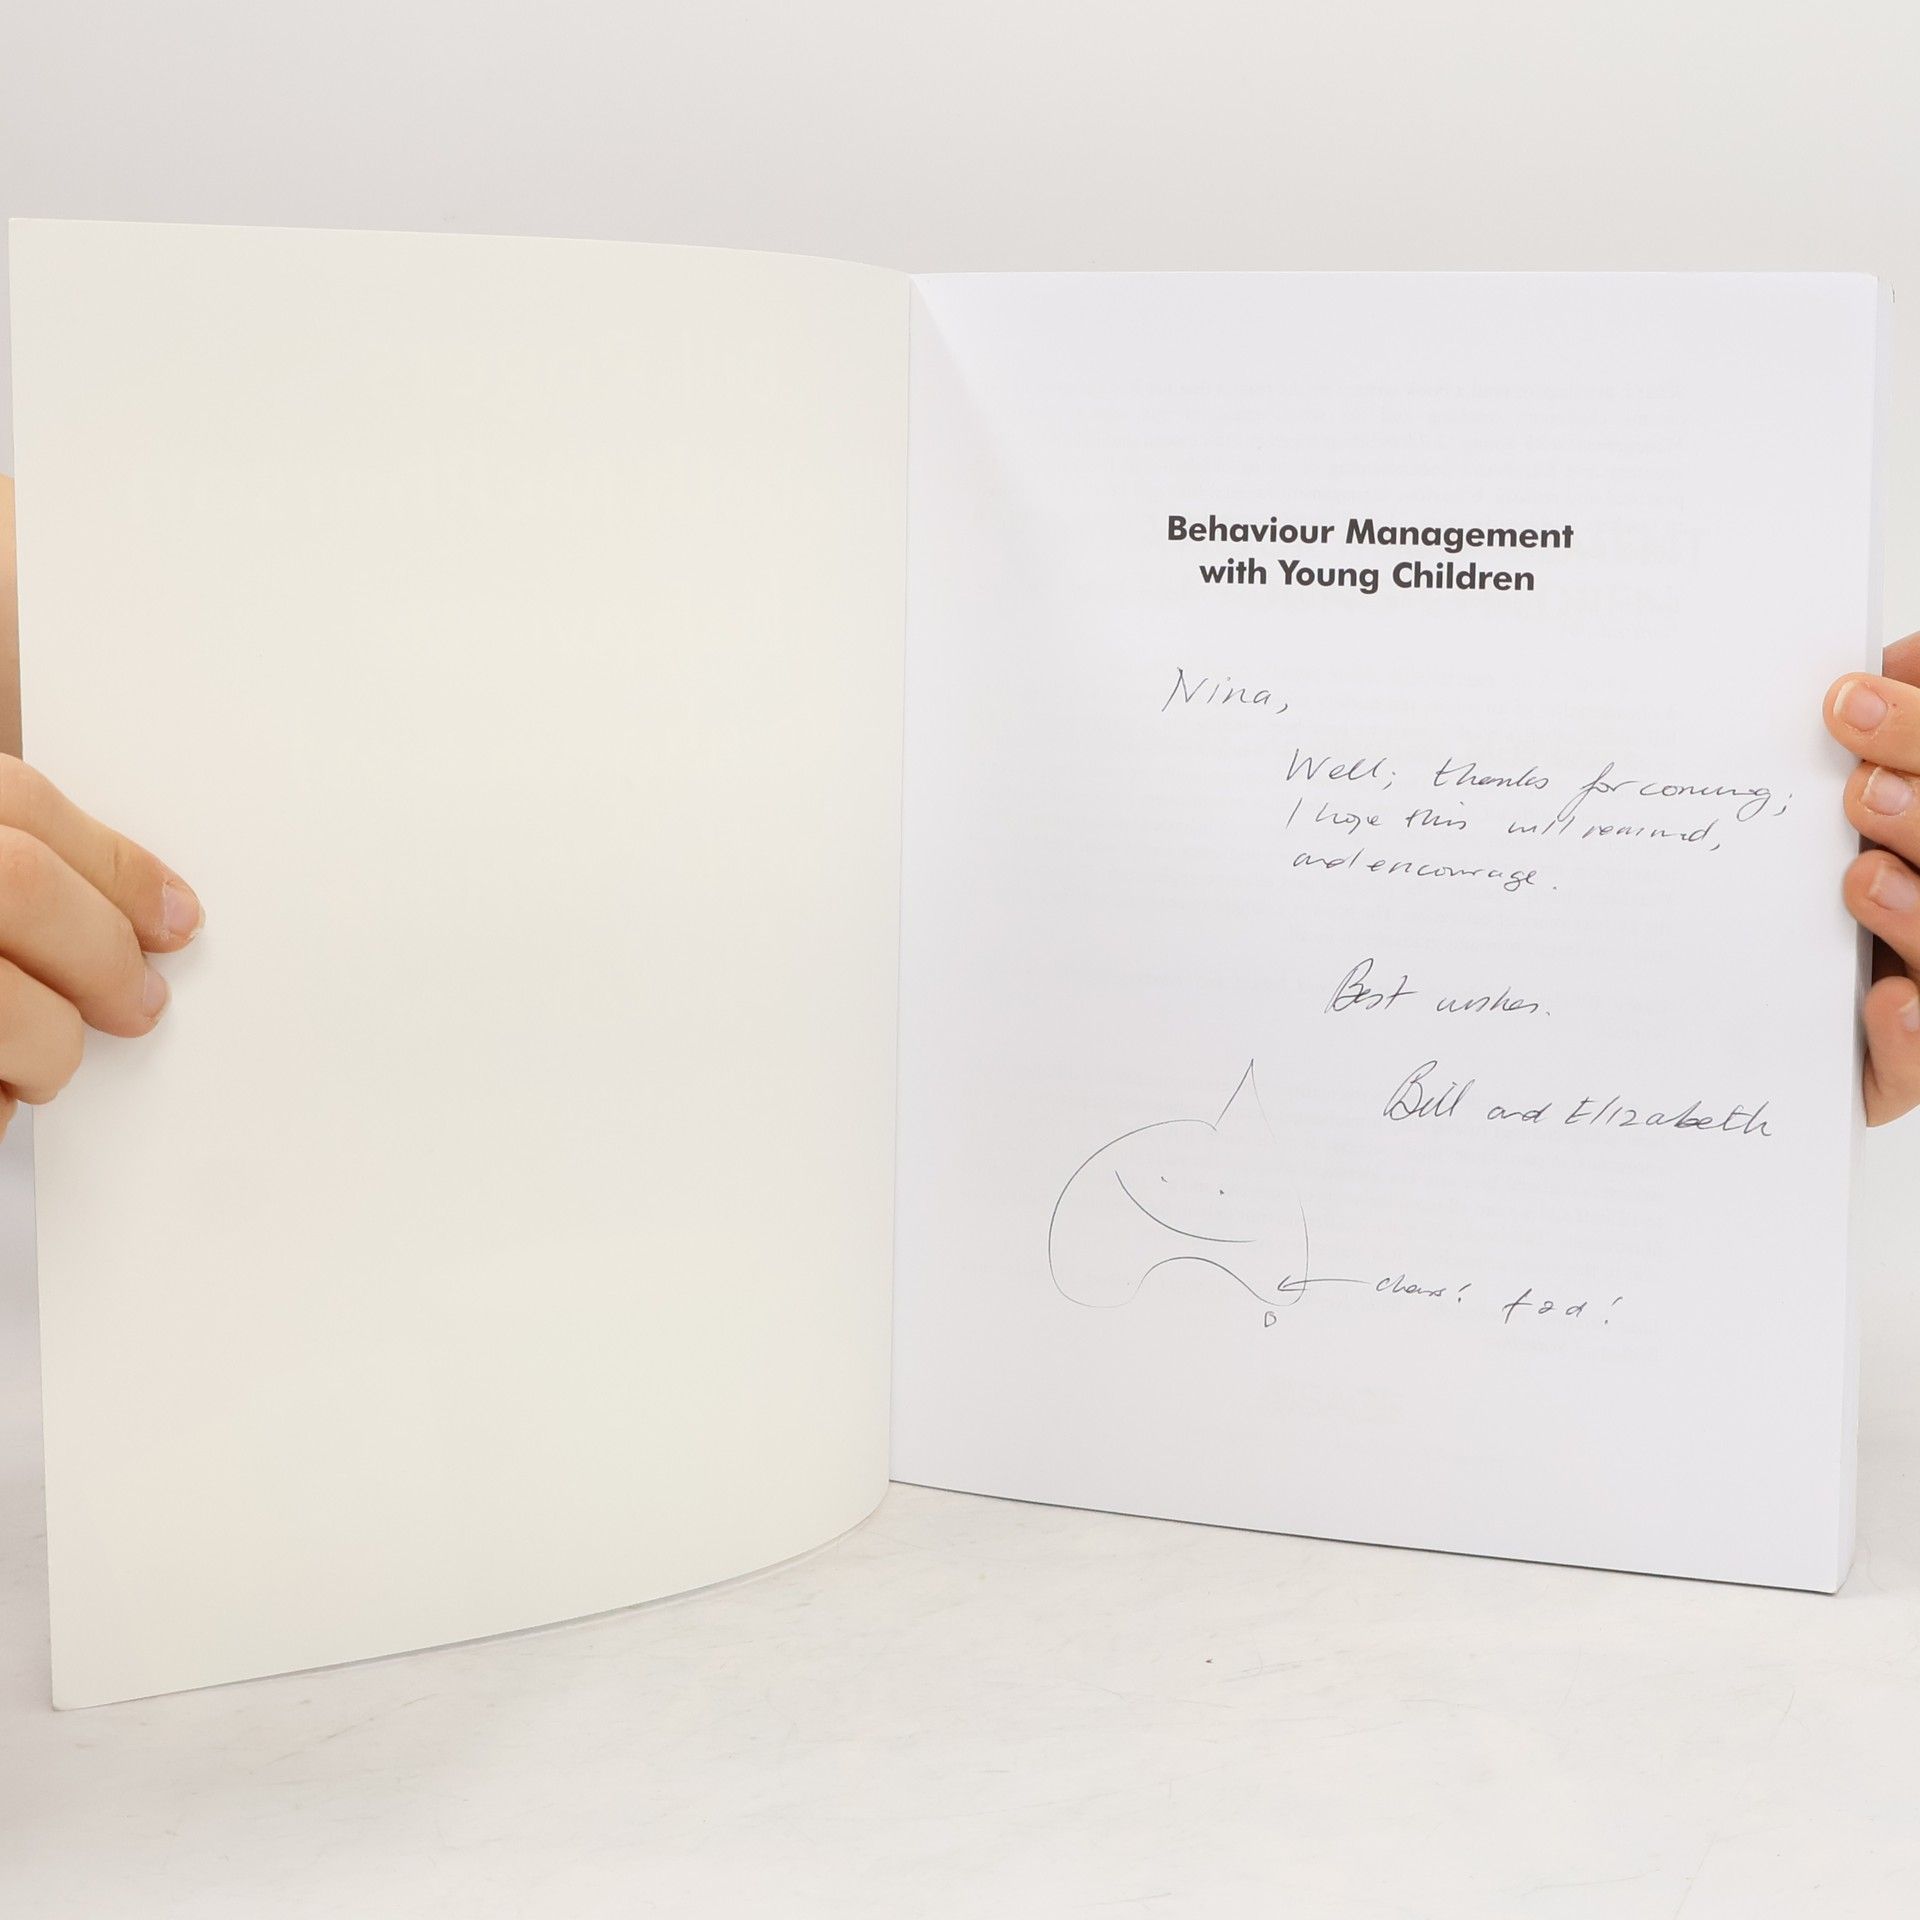 Behaviour Management
with Young Children
Nina,
Well; thanks for coming;
I hope this will remind,
and encourage.
Best wishes.
Bill and Elizabeth